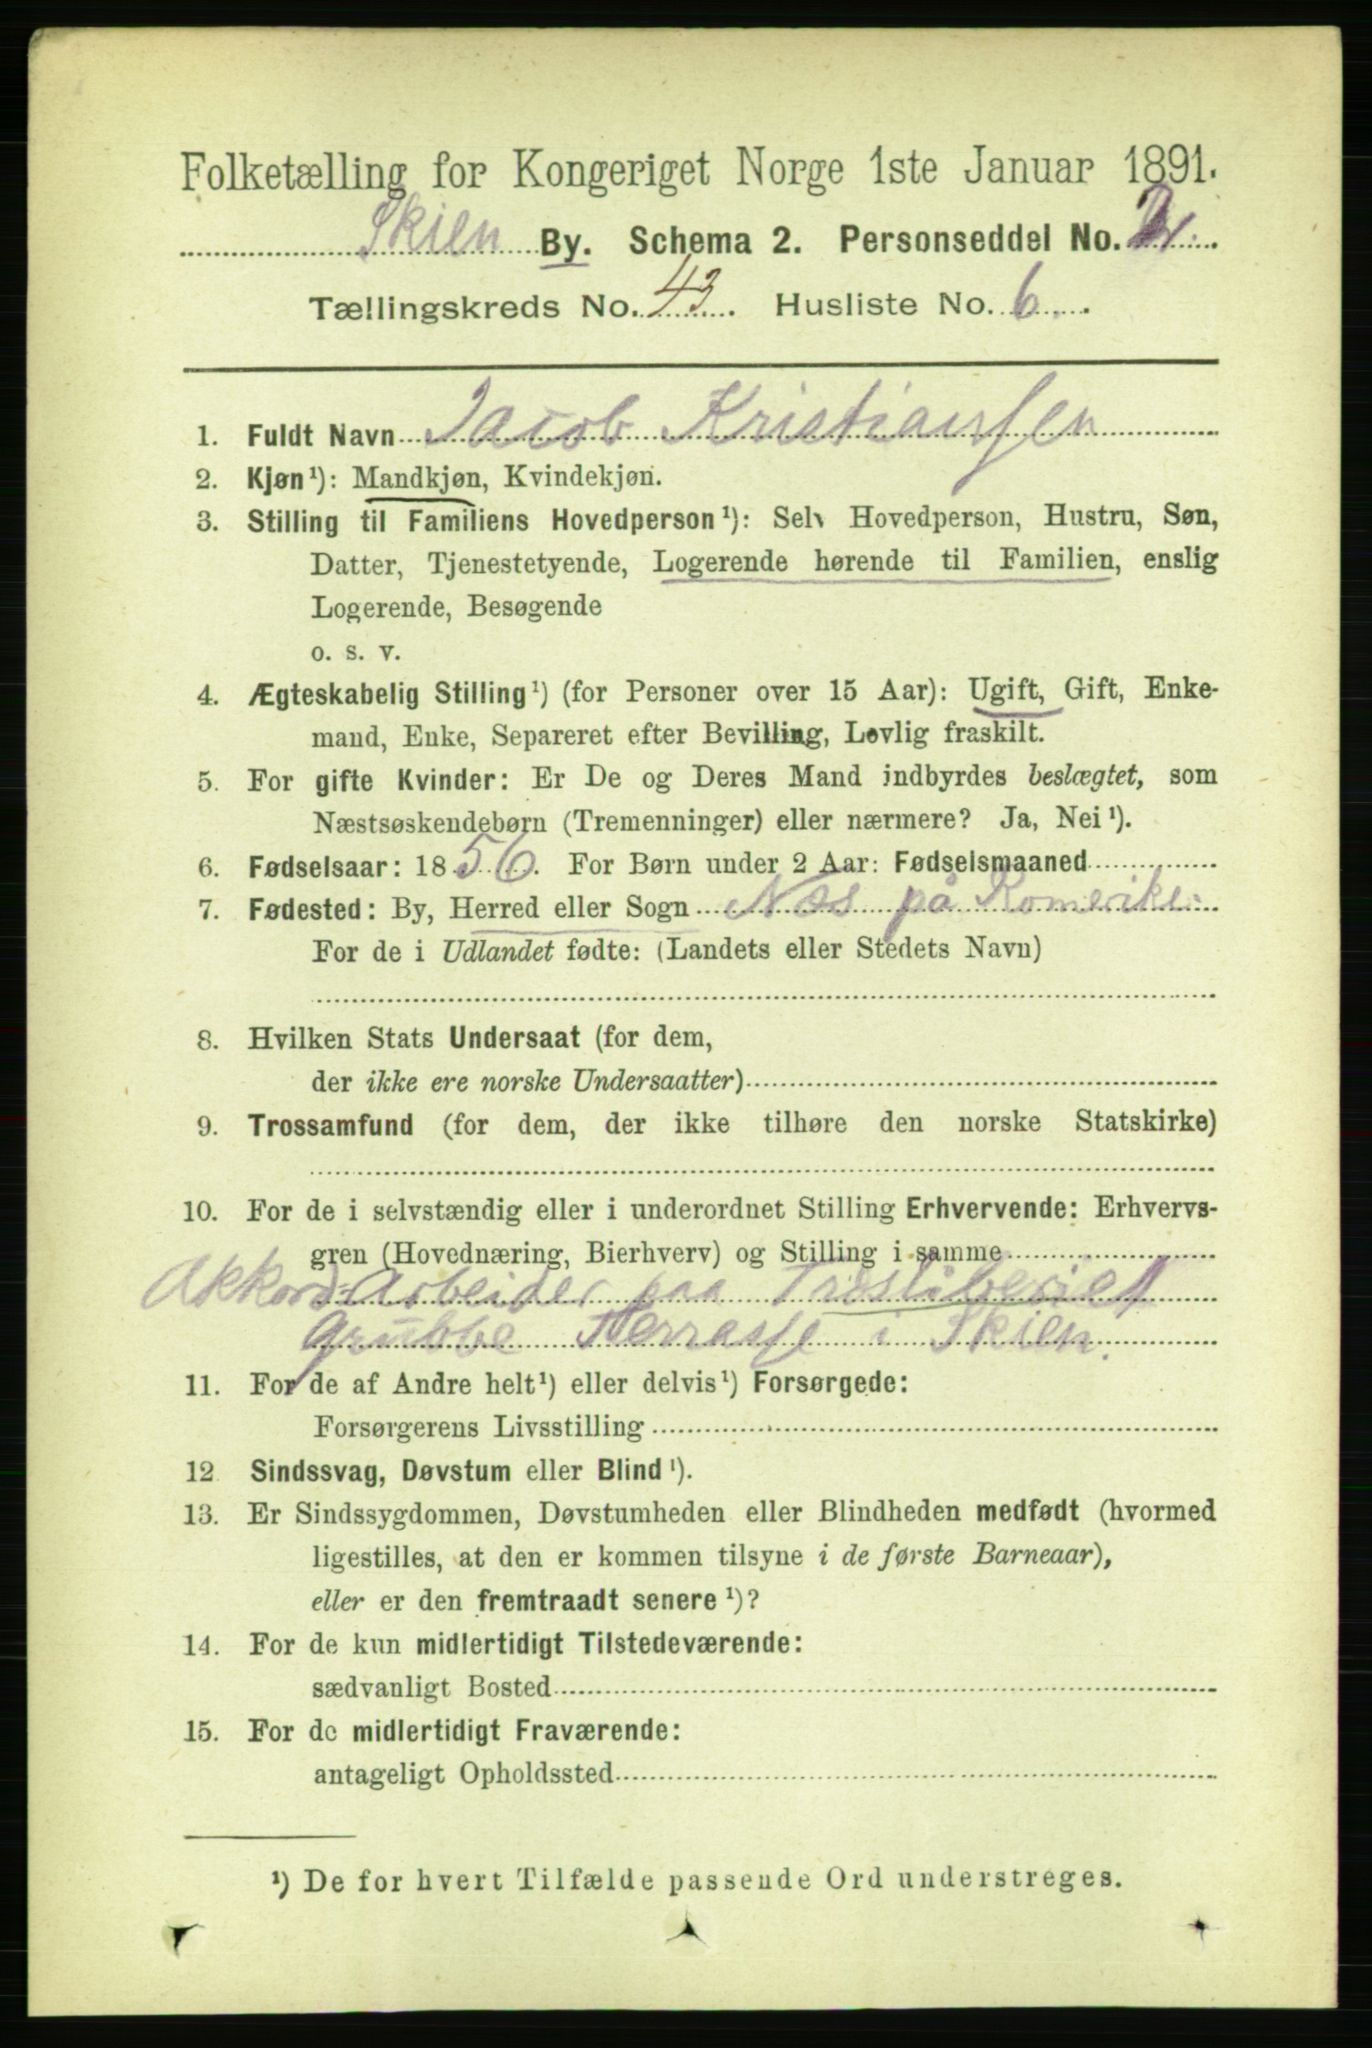 Folketælling for Kongeriget Norge 1ste Januar 1891.
Skien By. Schema 2. Personseddel No.
Tællingskreds No. 43. Husliste No. 6.
1. Fuldt Navn Jacob Kristianssen
2. Kjøn¹): Mandkjøn, Kvindekjøn.
3. Stilling til Familiens Hovedperson¹): Selv Hovedperson, Hustru, Søn,
Datter, Tjenestetyende, Logerende hørende til Familien, enslig
Logerende, Besøgende
o. s. v.
4. Ægteskabelig Stilling¹) (for Personer over 15 Aar): Ugift, Gift, Enke-
mand, Enke, Separeret efter Bevilling, Lovlig fraskilt.
5. For gifte Kvinder: Er De og Deres Mand indbyrdes beslægtet, som
Næstsøskendebørn (Tremenninger) eller nærmere? Ja, Nei¹).
6. Fødselsaar: 1856. For Børn under 2 Aar: Fødselsmaaned
7. Fødested: By, Herred eller Sogn Næs på Romerike
For de i Udlandet fødte: (Landets eller Stedets Navn)
8. Hvilken Stats Undersaat (for dem,
der ikke ere norske Undersaatter)
9. Trossamfund (for dem, der ikke tilhøre den norske Statskirke)
10. For de i selvstændig eller i underordnet Stilling Erhvervende: Erhvervs-
gren (Hovednæring, Bierhverv) og Stilling i samme
Akkord-Arbeider paa Træsliberiet
Grubbe Herrasse i Skien.
11. For de af Andre helt¹) eller delvis¹) Forsørgede:
Forsørgerens Livsstilling
12 Sindssvag, Døvstum eller Blind¹).
13. Er Sindssygdommen, Døvstumheden eller Blindheden medfødt (hvormed
ligestilles, at den er kommen tilsyne i de første Barneaar),
eller er den fremtraadt senere¹)?
14. For de kun midlertidigt Tilstedeværende:
sædvanligt Bosted
15. For de midlertidigt Fraværende:
antageligt Opholdssted
¹) De for hvert Tilfælde passende Ord understreges.